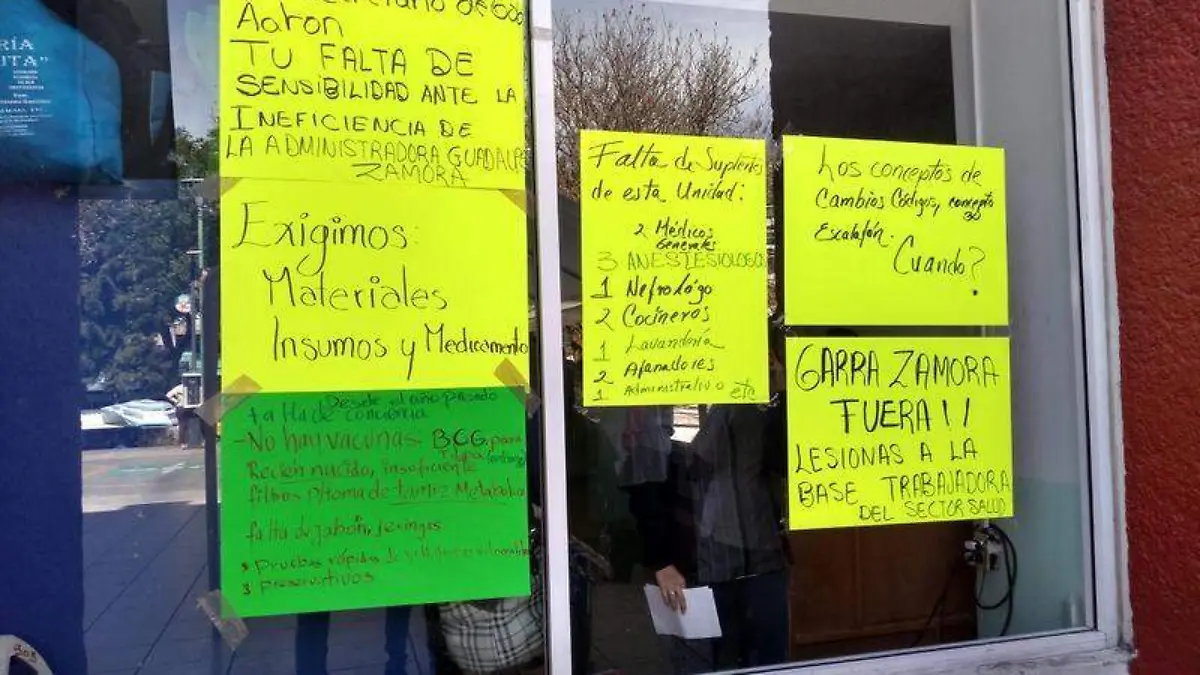 RÍA
ITA"
Aaron
TU FALTA DE
SENSIBILIDAD ANTE LA
INEFICIENCIA DE
LA ADMINISTRADORA GUADALPE
ZAMORA
Exigimos:
Materiales
Insumos y Medicamento
Desde el año pasado
falta de
-No hay vacunas BCG para
Recien nacido, insoficiente
p/toma de tamiz Metabolico
falta de jabón, jeringas
pruebas rápidas de
Falta de
de esta Unidad:
2 Médicos
Generales
3 ANESTESIOLOGO
1 Nefrológo
2 Cocineros
1 Lavandería
2 Afanadores
1 Administrativo etc
Los conceptos de
Cambios Códigos, concepto
30
Escalafón.
Cuando?
GARRA ZAMORA
FUERA!!
LESIONAS A LA
BASE TRABAJADORA
DEL SECTOR SALUD